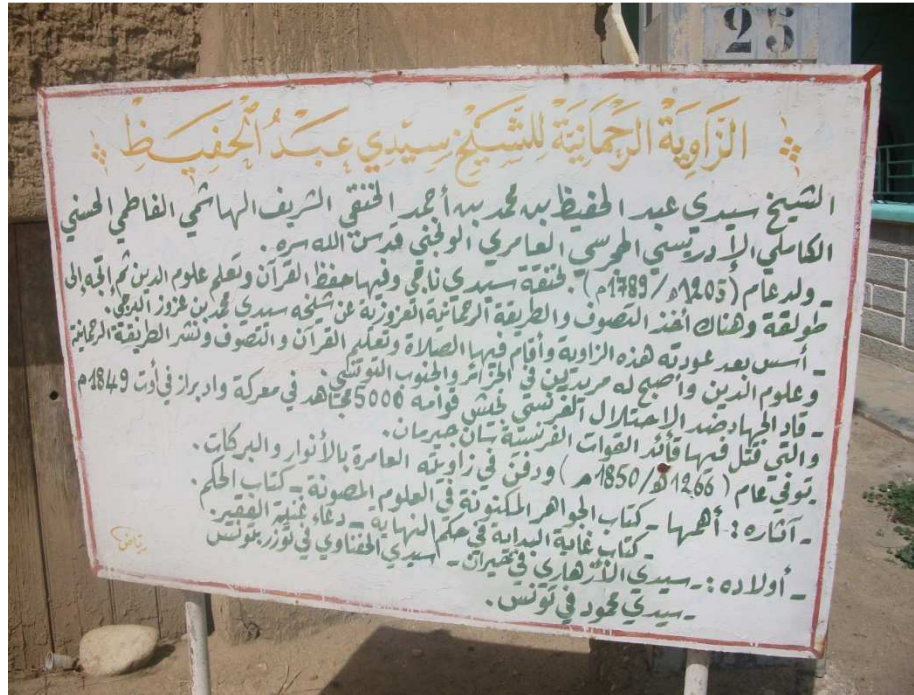 25
الزَّاوِيَة الرَّحْمَانِيَّة لِلشَّيْخ سِيدِي عَبْدُ الْحَفِيظْ
الشيخ سيدي عبد الحفيظ بن محمد بن أحمد الخنقي الشريف الهاشمي الفاطمي الحسني
الكاملي الإدريسي الهجرسي العامري الونجني قدس الله سره.
- ولد عام (1205هـ/1789م) بخنقة سيدي ناجي وفيها حفظ القرآن وتعلم علوم الدين ثم اتجه إلى
طولقة وهناك أخذ التصوف والطريقة الرحمانية العزوزية عن شيخه سيدي محمد بن عزوز البرجي.
- أسس بعد عودته هذه الزاوية وأقام فيها الصلاة وتعليم القرآن والتصوف ونشر الطريقة الرحمانية
وعلوم الدين وأصبح له مريدين في الجزائر والجنوب التونسي.
- قاد الجهاد ضد الإحتلال الفرنسي بجيش قوامه 5000 مجاهد في معركة واد براز في أوت 1849م
والتي قتل فيها قائد القوات الفرنسية سان جيرمان.
توفي عام (1266هـ/1850م) ودفن في زاويته العامرة بالأنوار والبركات.
- آثاره: أهمها - كتاب الجواهر المكنونة في العلوم المصونة - كتاب الحكم.
- كتاب غاية البداية في حكم النهاية - دعاء غنية الفقير.
- أولاده: - سيدي الأزهاري في خيران - سيدي الحفناوي في توزر بتونس
- سيدي محمود في تونس.
رياض